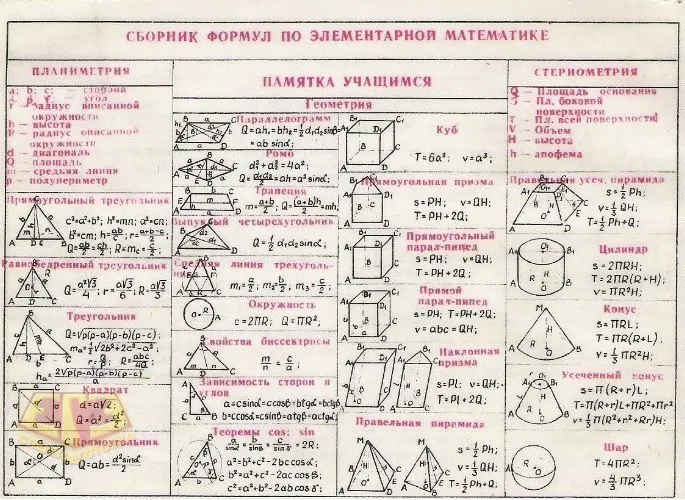 СБОРНИК ФОРМУЛ ПО ЭЛЕМЕНТАРНОЙ МАТЕМАТИКЕ
ПЛАНИМЕТРИЯ
a; b; c; — сторона
угол
r — радиус вписанной
окружности
h — высота
R — радиус описанной
окружности
d — диагональ
Q — площадь
m — средняя линия
p — полупериметр
Прямоугольный треугольник
c²=a²+b²; h²=mn; a²=cn;
b²=cm; h=ab/c; r=a+b-c/2
Q=ab/2=ch/2; R=mc=c/2
Равнобедренный треугольник
Q=a²√3/4; r=a√3/6; R=a√3/3
Треугольник
Q=√p(p-a)(p-b)(p-c);
ma=1/2√2b²+2c²-a²;
r=Q/p; R=abc/4Q
ha=2√p(p-a)(p-b)(p-c)/a
Квадрат
d=a√2;
Q=a²=d²/2
Прямоугольник
Q=ab=d²sinα/2
ПАМЯТКА УЧАЩИМСЯ
Геометрия
Параллелограмм
Q=ah₁=bh₂=1/2d₁d₂sinφ=
=ab sinα;
Ромб
d₁²+d₂²=4a²;
Q=d₁d₂/2=ah=a²sinα;
Трапеция
m=a+b/2; Q=(a+b)h/2=mh;
Выпуклый четырехугольник
Q=1/2d₁d₂sinα;
Средняя линия треуголь-
m₁=a/2; m₂=b/2; m₃=c/2;
Окружность
c=2ПR; Q=ПR²;
Свойства биссектрисы
m/n=c/a;
Зависимость сторон и
углов
a=c sinα=c cosβ=b tgα=b ctgβ
b=c cosα=c sinβ=a tgβ=a ctgα;
Теоремы cos; sin
a/sinα=b/sinβ=c/sinδ=2R;
a²=b²+c²-2bc cosα;
b²=a²+c²-2ac cosβ;
c²=a²+b²-2ab cosδ;
Куб
T=6a²; v=a³;
Прямоугольная призма
s=PH; v=QH;
T=PH+2Q;
Прямоугольный
парал-пипед
s=PH; v=QH;
T=PH+2Q;
Прямой
парал-пипед
s=PH; T=PH+2Q;
v=abc=QH;
Наклонная
призма
s=PL; v=QH;
T=PL+2Q;
Правельная пирамида
s=1/2Ph;
v=1/3QH;
T=1/2Ph+Q;
СТЕРНОМЕТРИЯ
Q — Площадь основания
S — Пл. боковой
поверхности
T — Пл. всей поверхности
V — Объем
H — высота
h — апофема
Правильная усеч. пирамида
s=1/2Ph;
v=1/3QH;
T=1/2Ph+Q;
Цилиндр
s=2ПRH;
T=2ПR(R+H);
v=ПR²H;
Конус
s=ПRL;
T=ПR(R+L);
v=1/3ПR²H;
Усеченный конус
s=П(R+r)L;
T=П(R+r)L+ПR²+Пr²
v=1/3П(R²+r²+Rr)H;
Шар
T=4ПR²;
v=4/3ПR³;